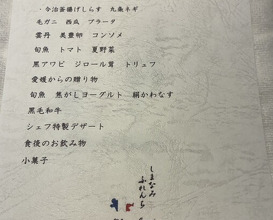 ・今治釜揚げしらす 九条ネギ
毛ガニ 西瓜 ブラータ
雲丹 美豊卵 コンソメ
旬魚 トマト 夏野菜
黒アワビ ジロール茸 トリュフ
愛媛からの贈り物
旬魚 焦がしヨーグルト 絹かわなす
黒毛和牛
シェフ特製デザート
食後のお飲み物
小菓子
しまなみ
ふれんち